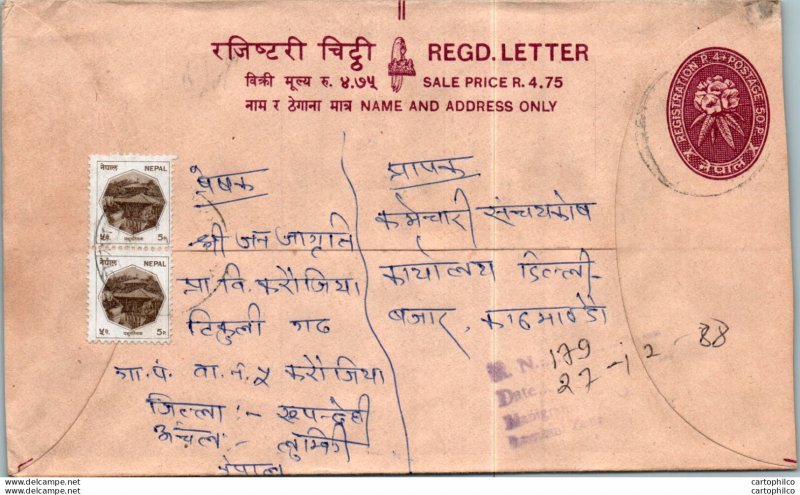 रजिष्टरी चिट्ठी REGD. LETTER
विक्री मूल्य रु. ४.७५ SALE PRICE R. 4.75
नाम र ठेगाना मात्र NAME AND ADDRESS ONLY
REGISTRATION P. 4+POSTAGE 50 P.
नेपाल
नेपाल NEPAL
५ पै. 5 P.
नेपाल NEPAL
५ पै. 5 P.
प्रेषक
श्री जन जागृति
प्रा. वि. करौजिया
टिकुली गढ
गा. पं. वा. नं. ५ करौजिया
जिल्ला :- रूपन्देही
अंचल :- लुम्बिनी
नेपाल
प्रापक
कर्मचारी संचयकोष
कार्यालय डिल्ली-
बजार, काठमाण्डौ
R. N. 179
Date 27-12-88
cartophilco
cartophilco